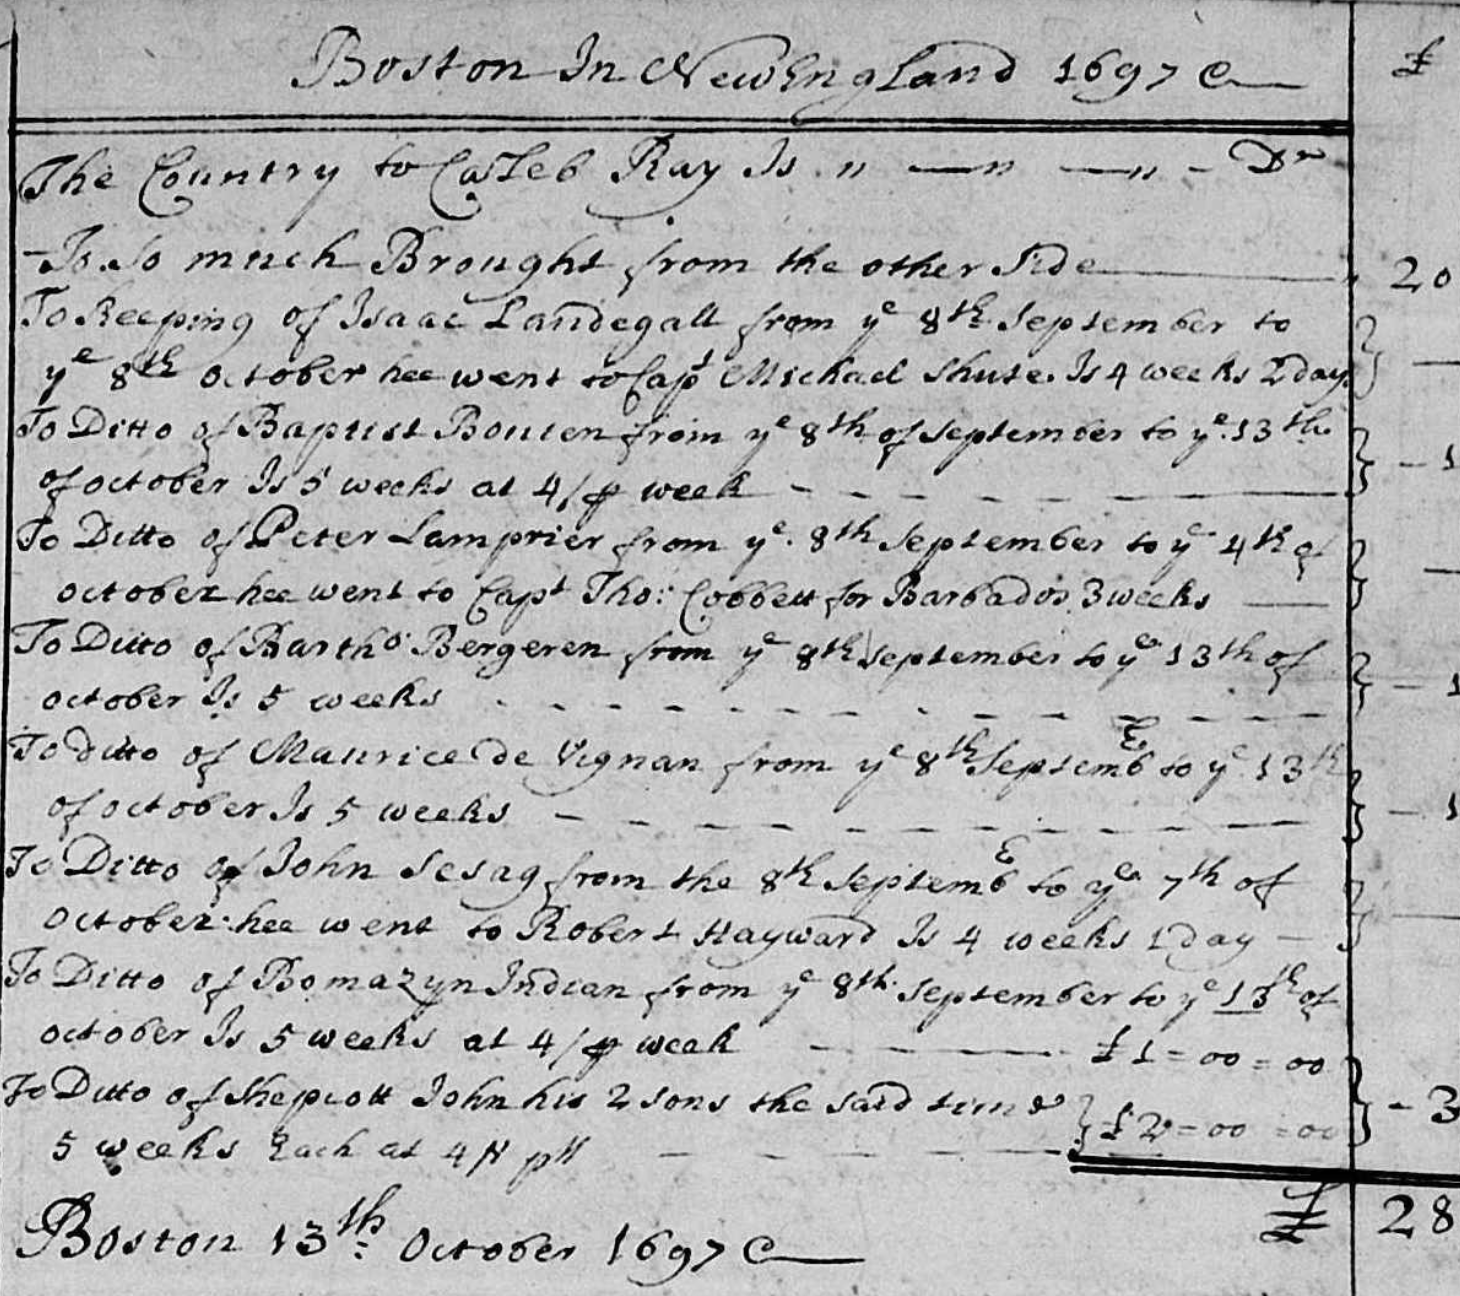 Boston In NewEngland 1697 £
The Country to Caleb Ray Is " — " — " - Dr
To So much Brought from the other Side — 20
To Keeping of Isaac Landegall from ye 8th September to
ye 8th October hee went to Capt Michael Shute. Is 4 weeks 2 days —
To Ditto of Baptist Bouten from ye 8th of September to ye 13th
of october Is 5 weeks at 4/ ⅌ week - - - - - 1
To Ditto of Peter Lamprier from ye 8th September to ye 4th of
october hee went to Capt Tho: Cobbett for Barbados 3 weeks —
To Ditto of Bartho: Bergeren from ye 8th September to ye 13th of
october Is 5 weeks - - - - - 1
To Ditto of Maurice De Vignan from ye 8th Septembr to ye 13th
of october Is 5 weeks - - - - - 1
To Ditto of John Sesag from the 8th Septembr to ye 7th of
october: hee went to Robert Hayward Is 4 weeks 1 day —
To Ditto of Bomazyn Indian from ye 8th September to ye 13th of
october Is 5 weeks at 4/ ⅌ week — £1=00=00
To Ditto of Shepcott John his 2 sons the said time
5 weeks Each at 4/ - - - £2=00=00 - 3
£ 28
Boston 13th: October 1697